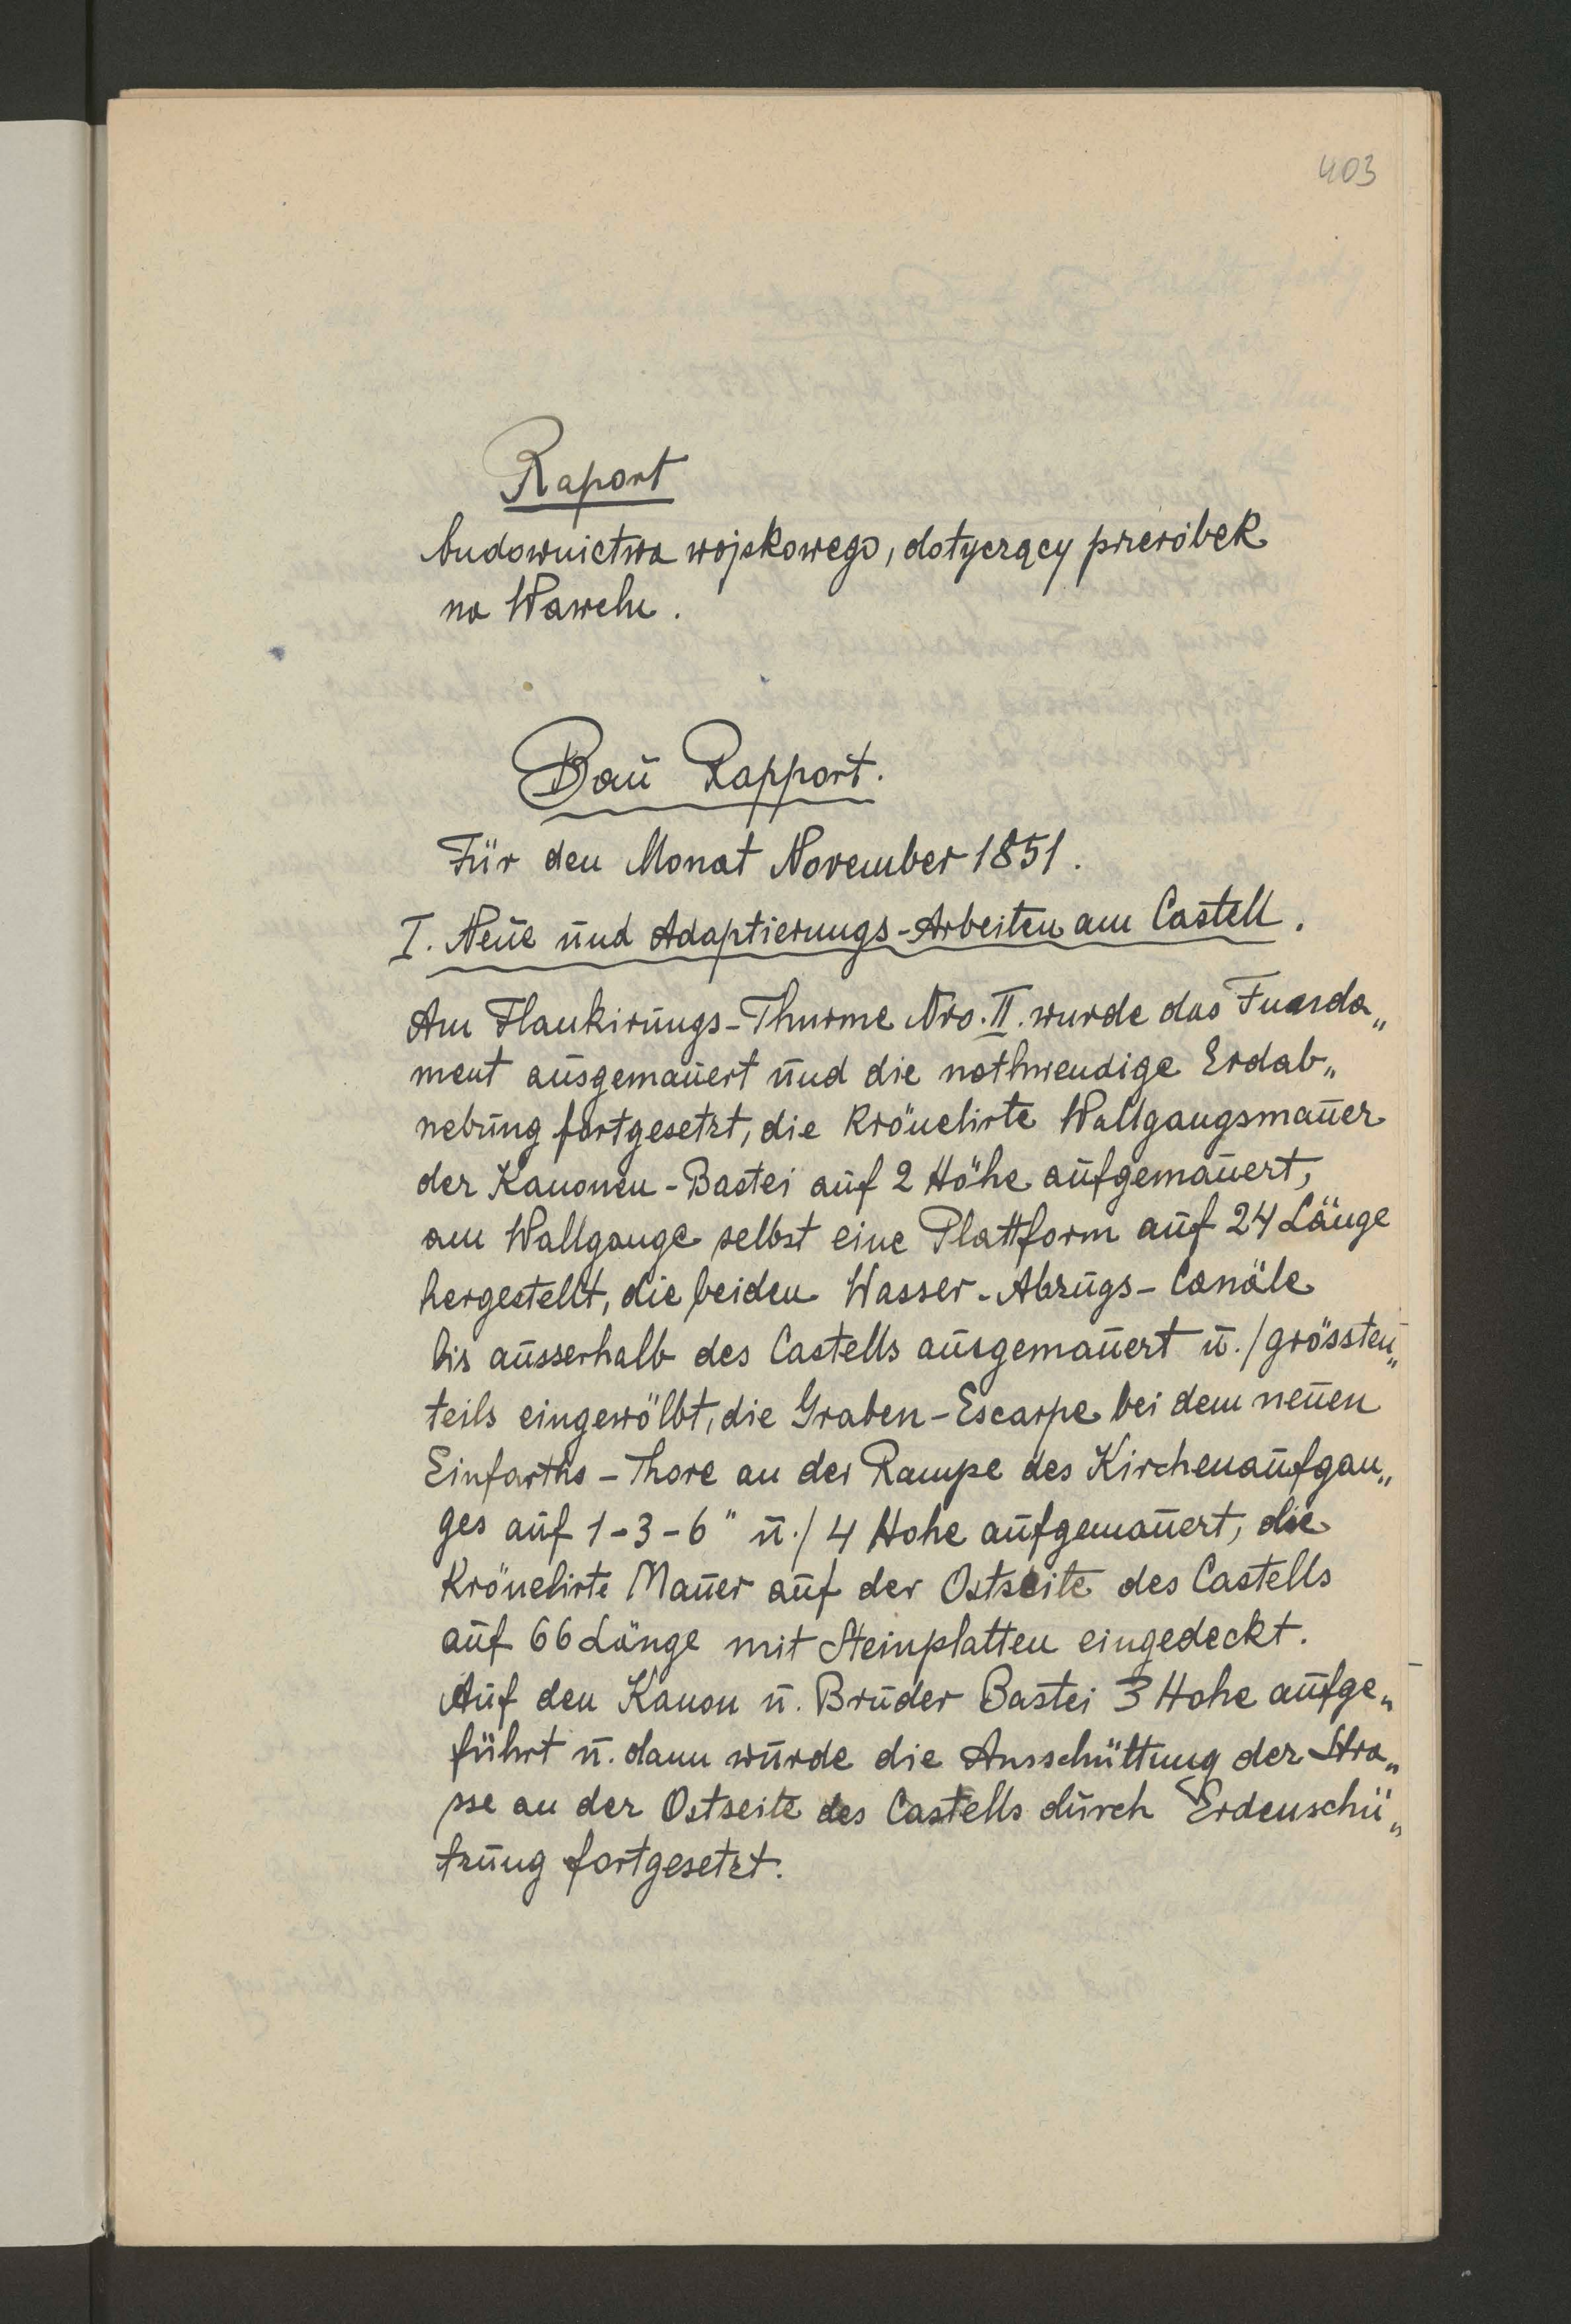 403
Raport
budownictwa wojskowego, dotyczący przeróbek
na Wawelu.
Baū Rapport.
Für den Monat November 1851.
I. Neūe ūnd Adaptierungs-Arbeiten am Castell.
Am Flankirūngs-Thurme Nro. II. wurde das Funda„
ment aūsgemaūert ūnd die nothwendige Erdab„
nebūng fortgesetzt, die Krönelirte Wallgangsmaūer
der Kanonen-Bastei aūf 2 Höhe aūfgemaūert,
am Wallgange selbst eine Plattform aūf 24 Länge
hergestellt, die beiden Wasser-Abzūgs-Canäle
bis aūsserhalb des Castells aūsgemaūert ū./grössten„
teils eingewölbt, die Graben-Escarpe bei dem neūen
Einfarths-Thore an der Rampe des Kirchenaūfgan„
ges aūf 1-3-6" ū./ 4 Hohe aūfgemaūert, die
Krönelirte Maūer aūf der Ostseite des Castells
aūf 66 Länge mit Steinplatten eingedeckt.
Aūf den Kanon ū. Brūder Bastei 3 Hohe aūfge„
führt ū. dann wūrde die Ansschüttūng der Stra„
sse an der Ostseite des Castells dūrch Erdenschü„
tzūng fortgesetzt.